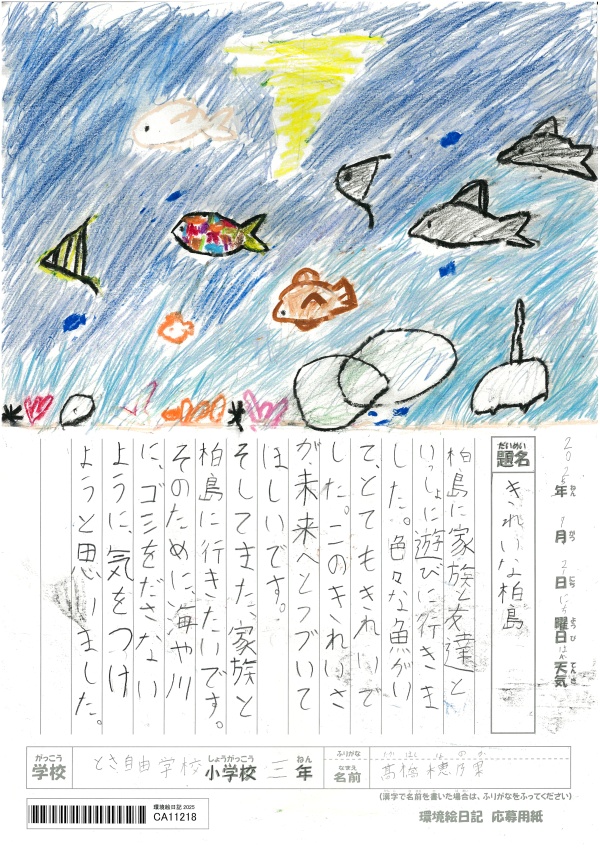 2025年ねん 月がつ 日にち 曜日ようび 天気てんき
だいめい
題名 きれいな柏島
柏島に家族と友達と
いっしょに遊びに行きま
した。色々な魚がい
て、とてもきれいで
した。このきれいさ
が未来へとつづいて
ほしいです。
そしてまた、家族と
柏島に行きたいです。
そのために、海や川
に、ゴミをださない
ように、気をつけ
ようと思いました。
がっこう しょうがっこう ねん
学校 とさ自由学校 小学校 三 年
ふりがな たかはし ほのか
なまえ
名前 高橋穂乃果
(漢字で名前を書いた場合は、ふりがなをふってください)
環境絵日記 2025
CA11218
環境絵日記 応募用紙